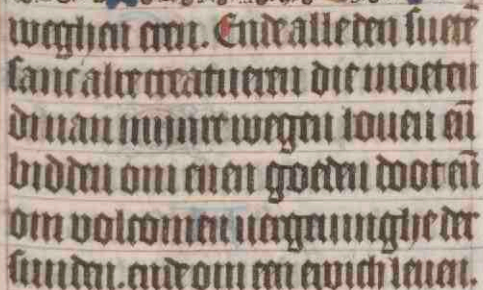 weghen eren. Ende alle den suetē
sanc alre creatueren die moeten
di uan minne wegen louen eñ
bidden om enen goeden doot eñ
om volcomen uergeuinghe der
sunden. ende om een ewich leuen.